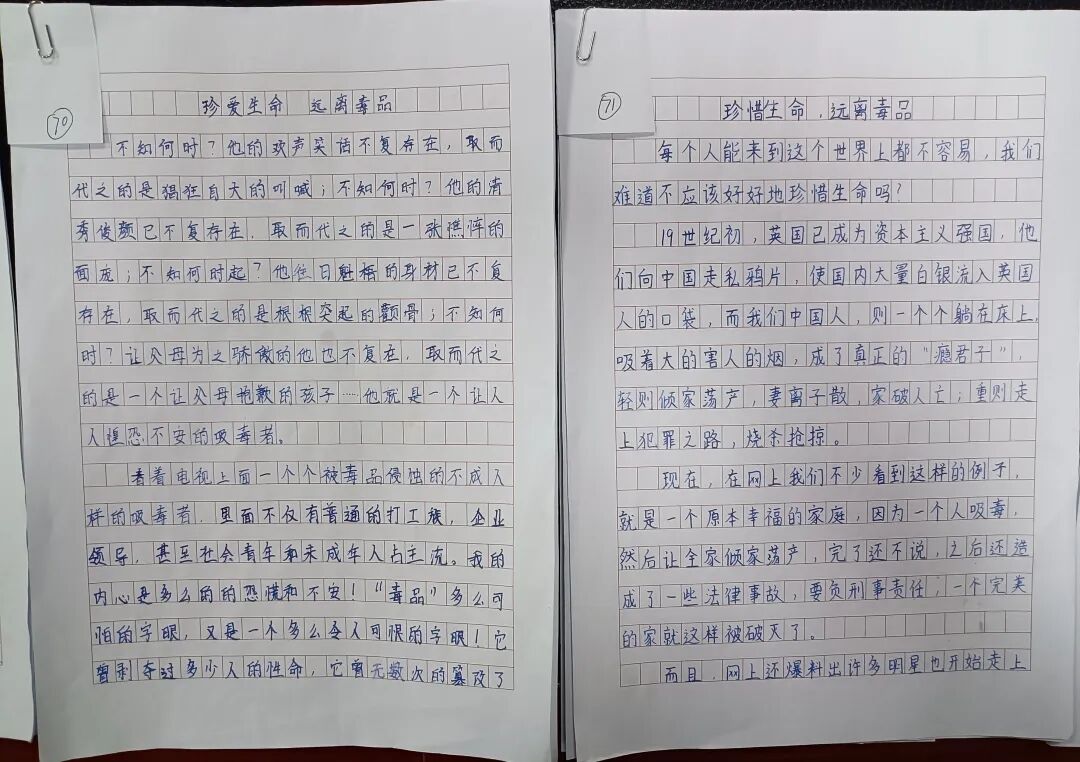 70
珍爱生命 远离毒品
不知何时？他的欢声笑语不复存在，取而
代之的是猖狂自大的叫喊；不知何时？他的清
秀俊颜已不复存在，取而代之的是一张憔悴的
面庞；不知何时起？他往日魁梧的身材已不复
存在，取而代之的是根根突起的颧骨；不知何
时？让父母为之骄傲的他也不复在，取而代之
的是一个让父母抱歉的孩子……他就是一个让人
人惶恐不安的吸毒者。
看着电视上面一个个被毒品侵蚀的不成人
样的吸毒者，里面不仅有普通的打工族，企业
领导，甚至社会青年和未成年人占主流。我的
内心是多么的的恐慌和不安！“毒品”多么可
怕的字眼，又是一个多么令人可恨的字眼！它
曾剥夺过多少人的性命，它曾无数次的篡改了
71
珍惜生命，远离毒品
每个人能来到这个世界上都不容易，我们
难道不应该好好地珍惜生命吗？
19世纪初，英国已成为资本主义强国，他
们向中国走私鸦片，使国内大量白银流入英国
人的口袋，而我们中国人，则一个个躺在床上，
吸着大的害人的烟，成了真正的“瘾君子”，
轻则倾家荡产，妻离子散，家破人亡；重则走
上犯罪之路，烧杀抢掠。
现在，在网上我们不少看到这样的例子，
就是一个原本幸福的家庭，因为一个人吸毒，
然后让全家倾家荡产，完了还不说，之后还造
成了一些法律事故，要负刑事责任；一个完美
的家就这样被破灭了。
而且，网上还爆料出许多明星也开始走上